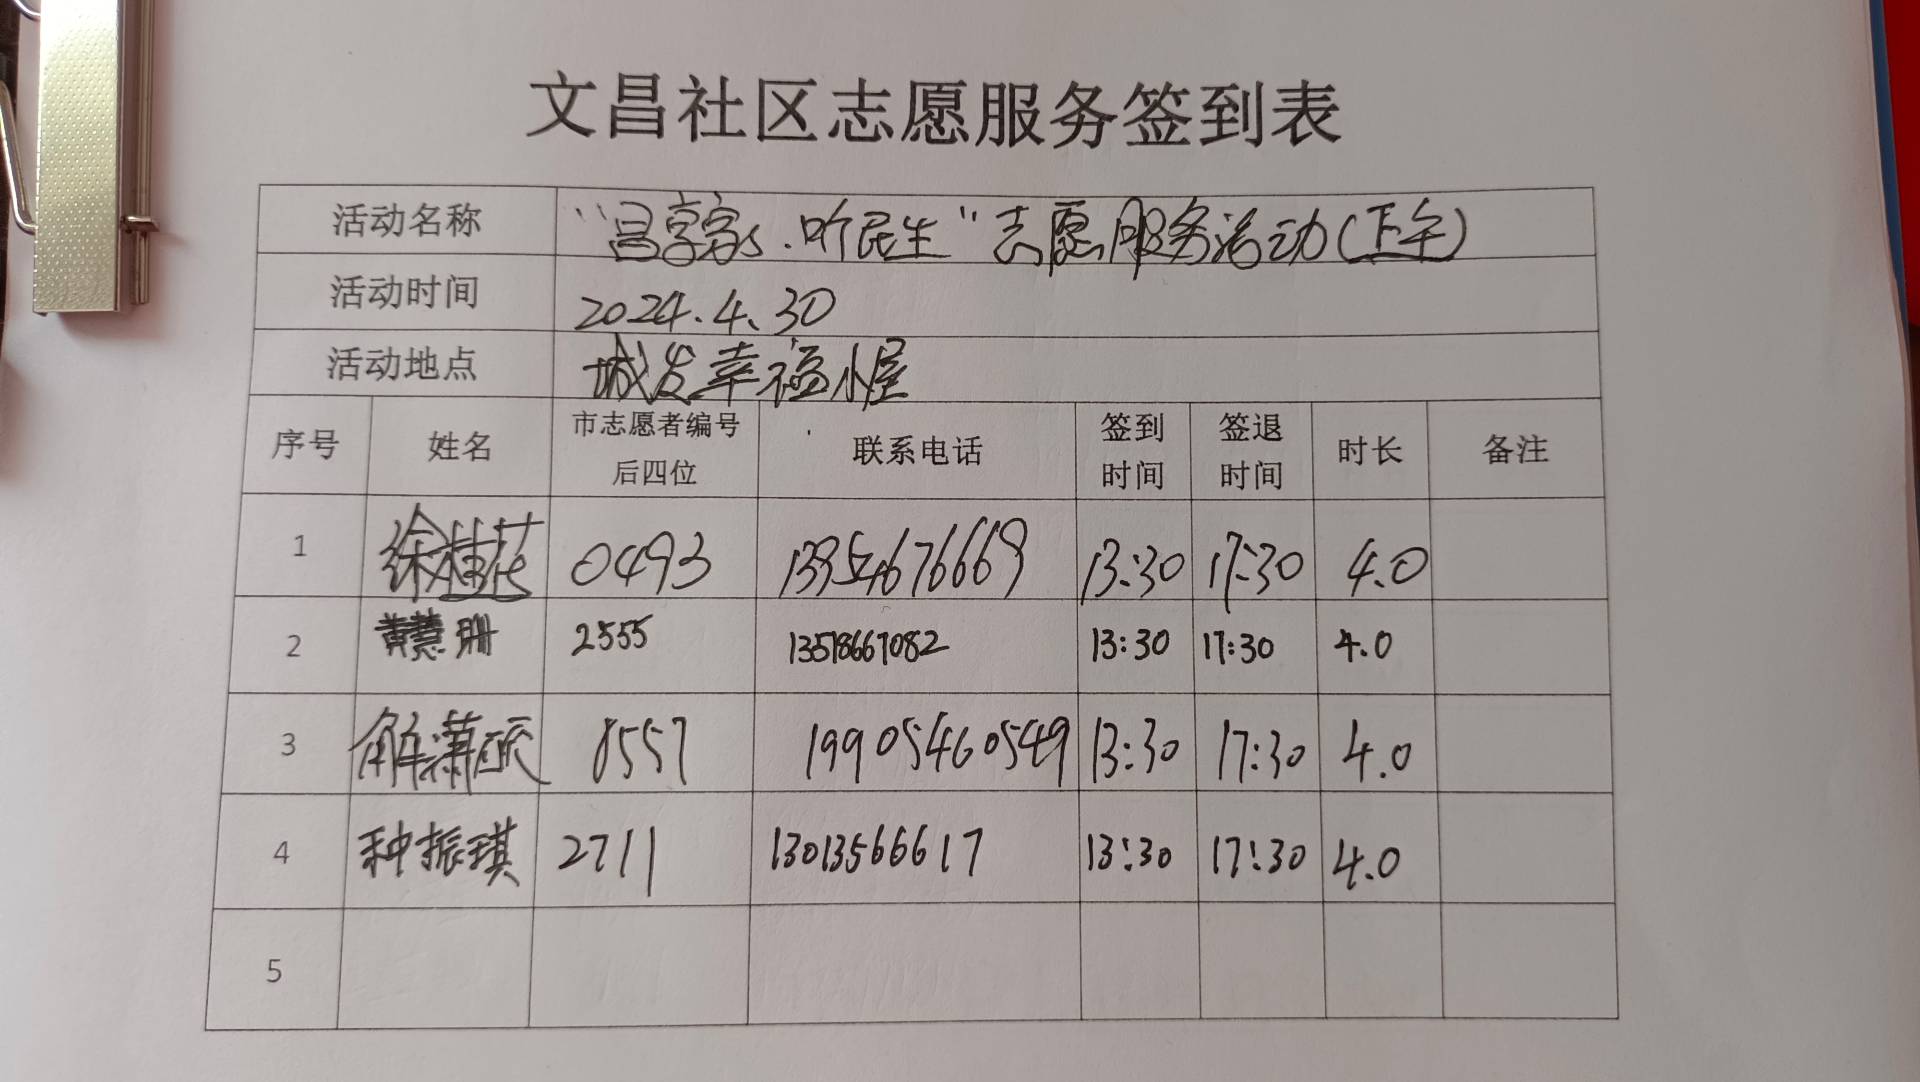 文昌社区志愿服务签到表
活动名称 "昌享家、听民生"志愿服务活动(下午)
活动时间 2024.4.30
活动地点 城发幸福小屋
序号 姓名 市志愿者编号后四位 联系电话 签到时间 签退时间 时长 备注
1 徐桂花 0493 13954676669 13:30 17:30 4.0
2 黄慧珊 2555 13518667082 13:30 17:30 4.0
3 解潇 8557 19905460549 13:30 17:30 4.0
4 种振琪 2711 13013566617 13:30 17:30 4.0
5